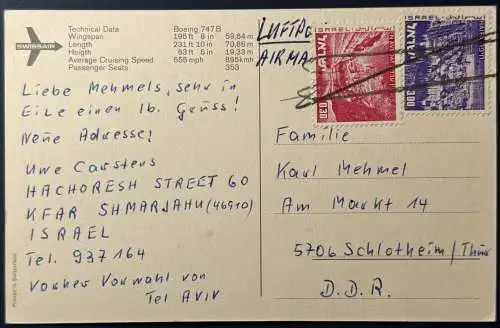 SWISSAIR
Technical Data Boeing 747 B
Wingspan 195 ft 8 in 59,64 m
Length 231 ft 10 in 70,66 m
Heigth 63 ft 5 in 19,33 m
Average Cruising Speed 555 mph 895 kmh
Passenger Seats 353
LUFTPO
AIRMA
ISRAEL
0.30
ISRAEL
0.80
Liebe Mehmels, sehr in
Eile einen lb. Gruss!
Neue Adresse:
Uwe Carstens
HACHORESH STREET 60
KFAR SHMARJAHU (46910)
ISRAEL
Tel. 937 164
Vorher Vorwahl von
Tel Aviv
Familie
Karl Mehmel
Am Markt 14
5706 Schlotheim/Thür
D.D.R.
Printed in Switzerland